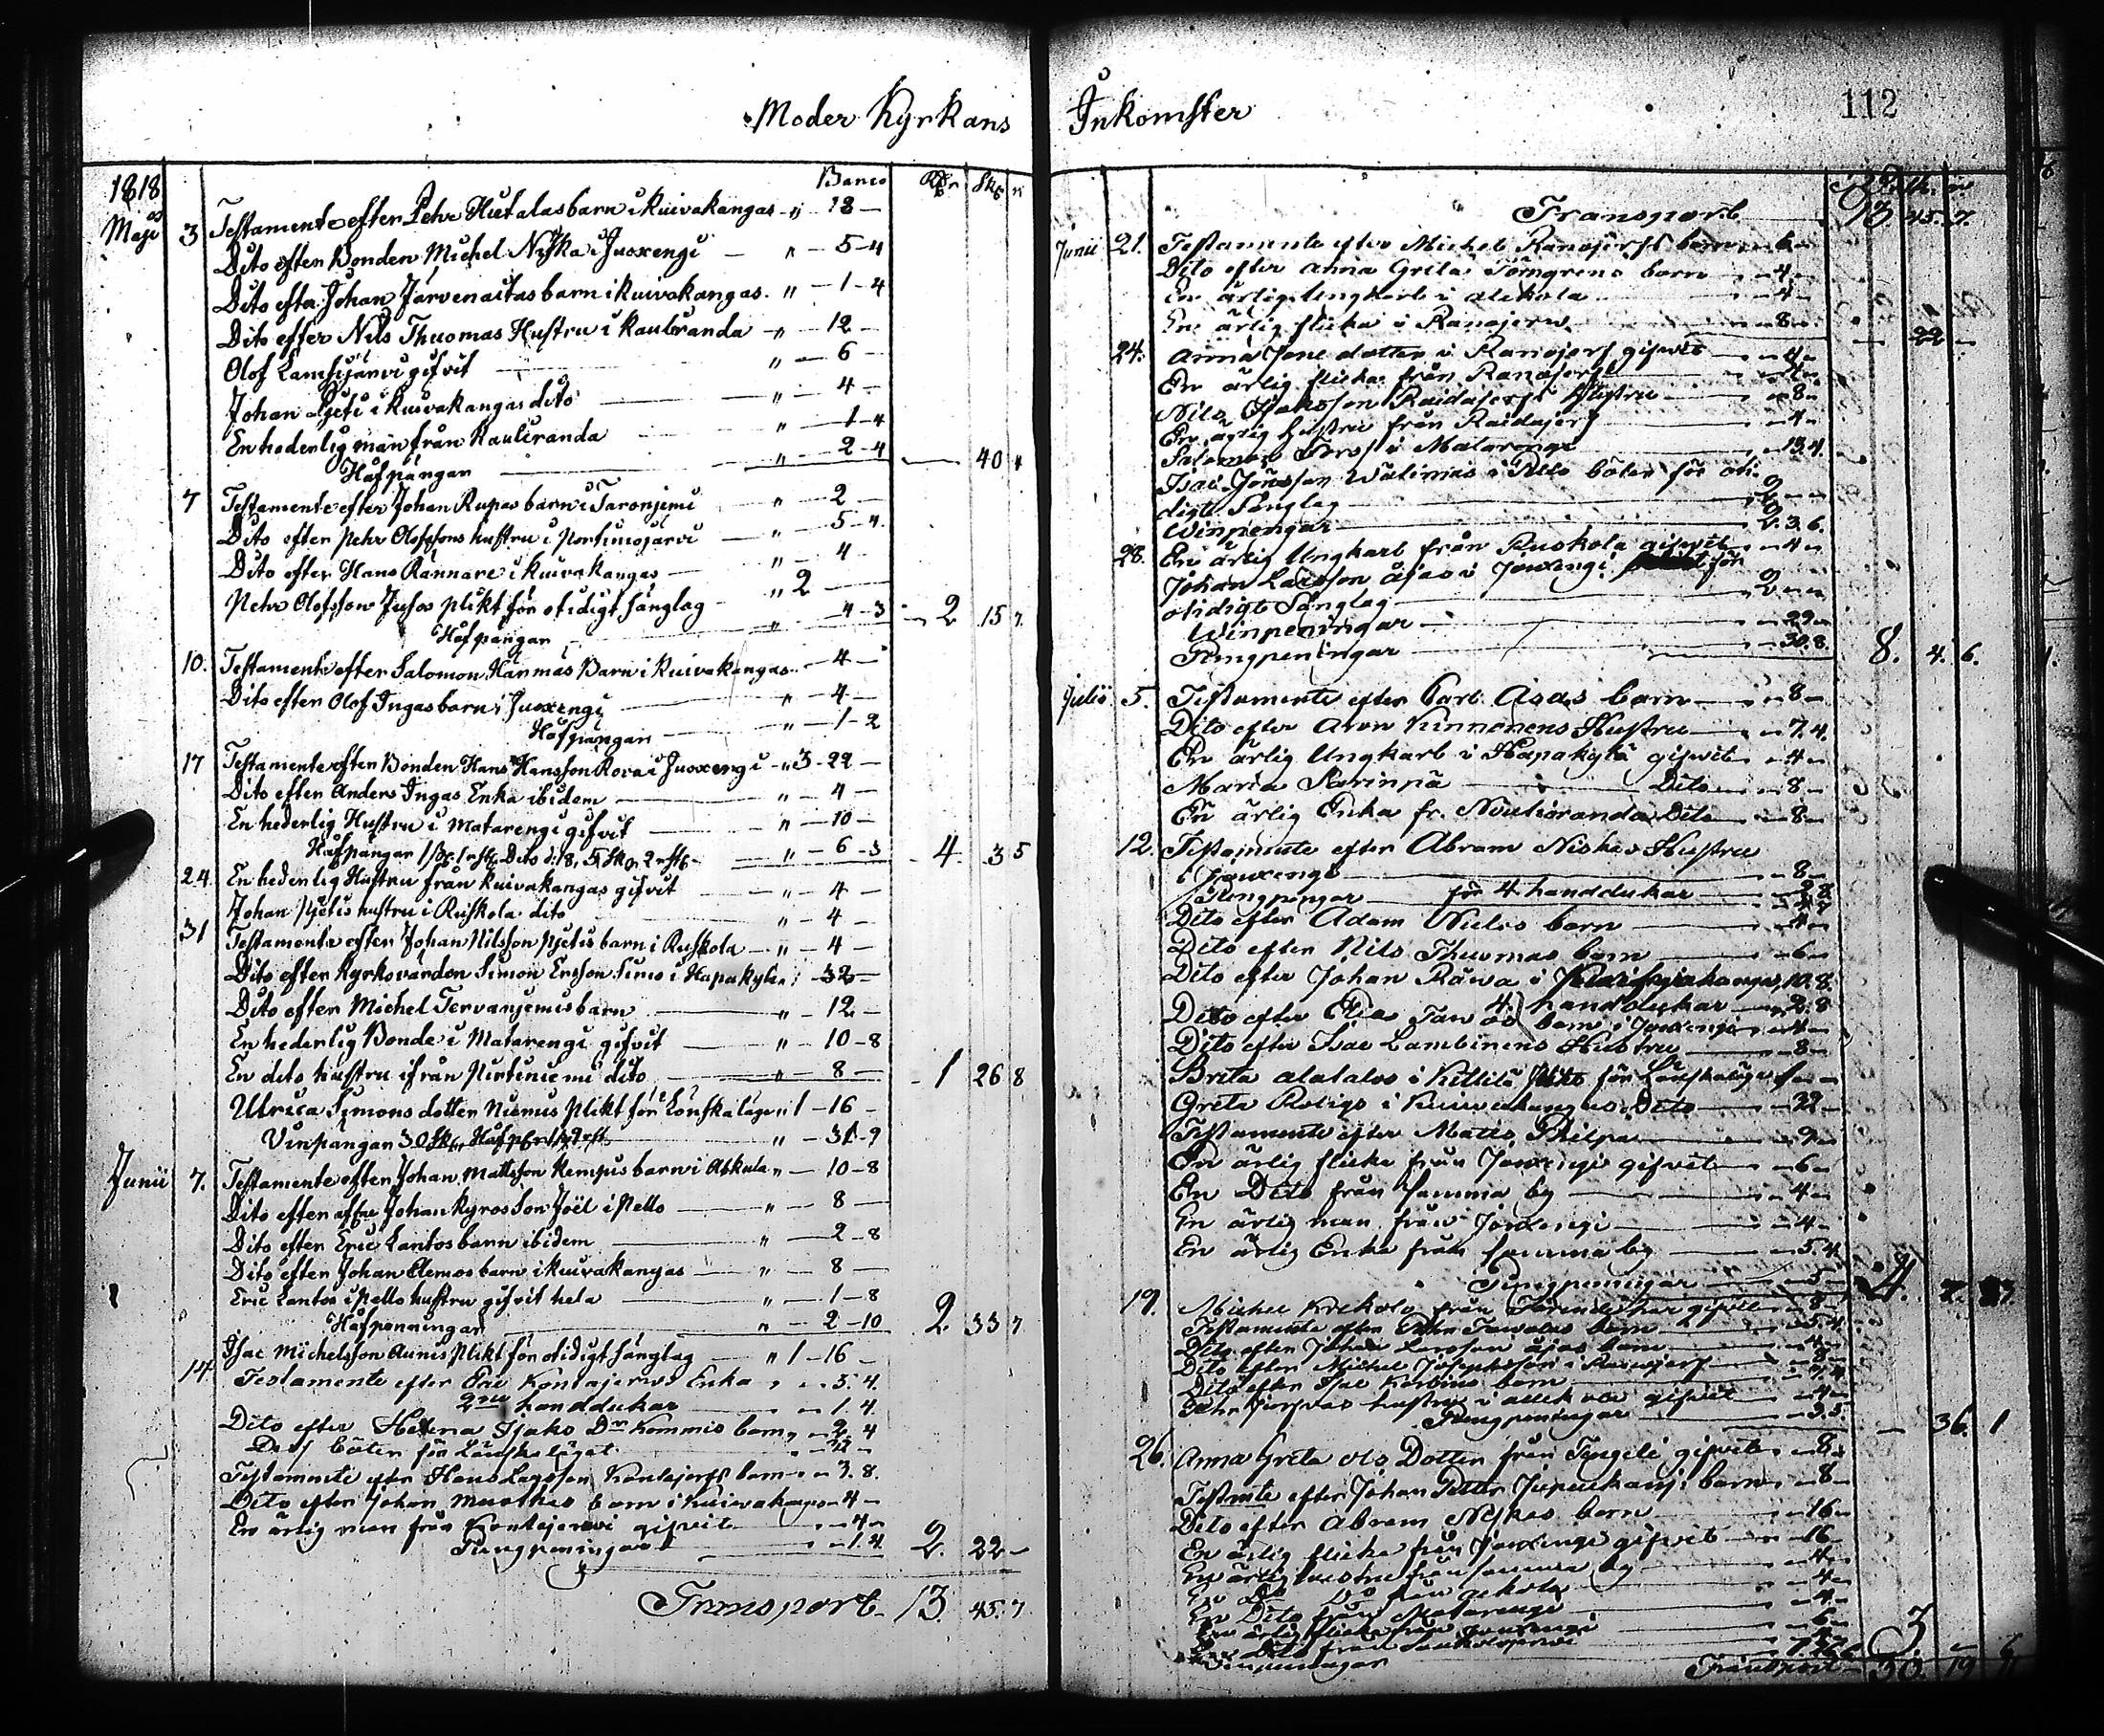 Moder Kyrkans
1818 Banco Rdr Skg r
Maji 3 Testamente efter Pehr Hutalas barn i Kuivakangas - " 18 -
Dito efter Bonden Michel Niska i Juoxengi - " - 5 - 4
Dito efter Johan Järvenaitas barn i Kuivakangas. " - 1 - 4
Dito efter Nils Thuomas Hustru i Kauliranda - " - 12 -
Olof Lamsijärvi gifvit " - 6 -
Johan Pjeti i Kuivakangas dito " - 4 -
En hederlig man från Kauliranda " - 1 - 4
Håfpängar " - 2 - 4 - 40 4
7 Testamente efter Johan Rupas barn i Taronjemi " - 2 -
Dito efter Pehr Olofssons hustru i Portimojärvi - " - 5 - 4
Dito efter Hans Rännare i Kuivakangas - " - 4
Pehr Olofsson Jusos plikt för otidigt sänglag " 2 -
Håfpängar " - 4 - 3 - 2 15 7
10. Testamente efter Salomon Hannus Barn i Kuivakangas. - 4 -
Dito efter Olof Ingas barn i Juoxengi " - 4 -
Håfpängar " - 1 - 2
17 Testamente efter Bonden Hans Hansson Rova i Juoxengi - " 3 - 22 -
Dito efter Anders Ingas Enka ibidem " - 4 -
En hederlig Hustru i Matarengi gifvit " - 10 -
Håfpängar Dito d: 18, 5 Sk 2 rst " - 6 - 3 - 4. 3 5
24 En hederlig Hustru från Kuivakangas gifvit - " - 4 -
Johan Pjetis hustru i Ruskola dito " - 4 -
31 Testamente efter Johan Nilsson Pjetis barn i Ruskola - " - 4 -
Dito efter Kyrkovärden Simon Ersson Simo i Hapakyla " - 32 -
Dito efter Michel Tervanjemis barn " - 12 -
En hederlig Bonde i Matarengi gifvit " - 10 - 8
En dito hustru ifrån Pirtiniemi dito " - 8 - - 1 26 8
Ulrica Simons dotter Niemis plikt för Lönskaläge " 1 - 16 -
Vinpängar 30 Sk. " - 31 - 9
Junii 7. Testamente efter Johan Mattsson Kempis barn i Alkula " - 10 - 8
Dito efter Johan Kyros Son Joël i Pello " - 8 -
Dito efter Eric Lantos barn ibidem " - 2 - 8
Dito efter Johan Clemos barn i Kuivakangas " - 8 -
Eric Lantos i Pello hustru gifvit hela " - 1 - 8
Håfpenningar " - 2 - 10 2. 33 7
Isac Michelsson Aunis plikt för otidigt sänglag " 1 - 16 -
14. Testamente efter Eric Kontajerwis Enka " - 5. 4.
2ne handdukar " - 1. 4
Dito efter Helena Isaks Dr Kommis barn - 2. 4
Dess böter för Lönskaläget - 32 -
Testamente efter Hans Larsson Kontajerfs barn - 3. 8.
Dito efter Johan Muotkas barn i Kuivakangas - 4 -
En ärlig man från Kontajerwi gifvit - 4 -
Pungpeningar - 1. 4 2. 22 -
Transport 13. 45. 7
Inkomster
112
Transport 13. 45. 7.
Junii 21. Testamente efter Michel Ranajerfs barn - 6 -
Dito efter Anna Greta Törngrens barn - 4 -
En ärlig Ungkarl i Alekola - 4 -
En ärlig flicka i Ranajerw - 8 - - 22 -
24. Anna Jone dotter i Ranajerf gifwit - 4 -
En ärlig flicka från Ranajerf - 4 -
Nils Isaksson Raidajerfs Hustru - 8 -
En ärlig hustru från Raidajerf - 4 -
Salomon Fors i Matarengi - 13. 4.
Isac Jönsson Wälimas i Pello böter för oti-
digt Sänglag 2 - -
Winpengar 2. 3. 6.
28. En ärlig Ungkarl från Ruskola gifwit - 4 -
Johan Larsson Äjas i Joxengi för
otidigt Sänglag 2 - -
Winpeningar - 29 -
Pungpeningar - 30. 8. 8. 4. 6.
Julii 5. Testamente efter Carl Asas barn - 8 -
Dito efter Aron Kinnanens Hustru - 7. 4.
En ärlig Ungkarl i Hapakylä gifwit - 4 -
Maria Karinpä Dito - 8 -
En ärlig Enka fr. Niuliranda Dito - 8 -
12. Testamente efter Abram Niskas Hustru
i Joxengi - 8 -
Pengpengar för 4 handdukar - 2. 8
Dito efter Adam Nielis barn - 4 -
Dito efter Nils Thuomas barn - 6 -
Dito efter Johan Räwa i 10. 8.
4 handdukar - 2. 8
Dito efter barn i Joxengi - 4 -
Dito efter Isac Lambinens Hustru - 8 -
Brita Alatalos i Kittilä Plikt för Lönskaläge 1 - -
Greta Rotigs i Kuiwakangas Dito - 32 -
Testamente efter Matts Philpa - 9 -
En ärlig flicka från Joxengi gifwit - 6 -
En Dito från samma by - 4 -
En ärlig man från Joxengi - 4 -
En ärlig Enka från samma by - 5. 4.
Pungpeningar - 5 - 4. 7.
19. Michel Krekola från gifwit - 8 -
Testamente efter barn - 5. 4.
Dito efter Johan Larsson Äjas barn - 4 -
Dito efter Michel Josephsson i Ranajerf
Dito efter Isac Korbins barn
Pehr hustru i gifwit - 4 -
Pungpeningar - 3. 5. - 36. 1
26. Anna Greta Ols Dotter från Tengeli gifwit - 8 -
Testmte efter Johan Petter Jupukans barn - 8 -
Dito efter Abram Niskas barn - 16 -
En ärlig flicka från Joxengi gifwit - 16 -
En ärlig hustru från samma by - 4 -
En Do Do från - 4 -
En Dito från Matarengi - 4 -
En ärlig flicka från Joxengi - 6 -
En Dito från
Transport 30. 19